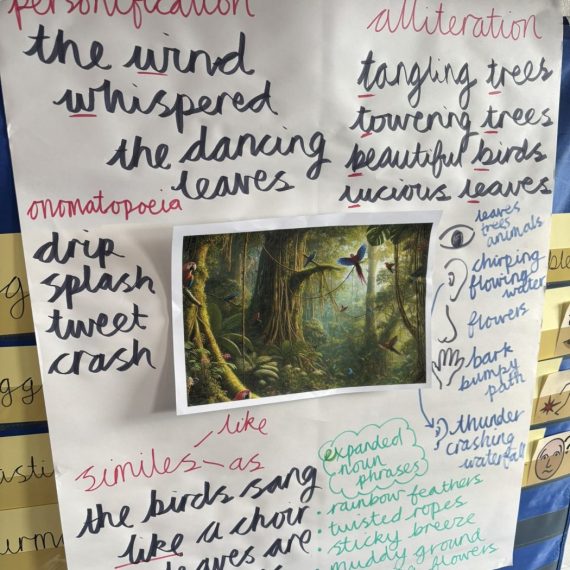 personification
the wind
whispered
the dancing
leaves
alliteration
tangling trees
towering trees
beautiful birds
lucious leaves
onomatopoeia
drip
splash
tweet
crash
leaves
trees
animals
chirping
flowing
water
flowers
bark
bumpy
path
thunder
crashing
waterfall
like
similes - as
the birds sang
like a choir
leaves are
expanded
noun
phrases
• rainbow feathers
• twisted ropes
• sticky breeze
• muddy ground
flowers